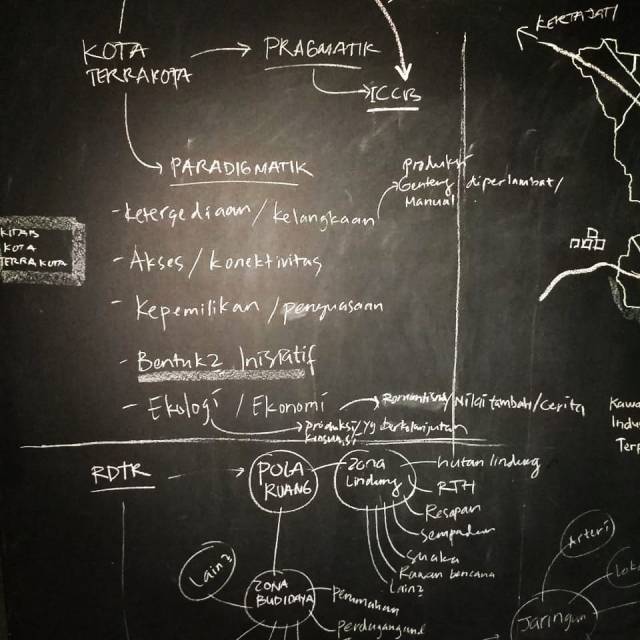 KERTAJATI
KOTA
TERRAKOTA
PRAGMATIK
ICCB
PARADIGMATIK
produksi
Genteng diperlambat/
Manual
- ketergediaan / kelangkaan
KITAB
KOTA
TERRAKOTA
- Akses / konektivitas
- Kepemilikan / penguasaan
- Bentuk2 Inisiatif
- Ekologi / Ekonomi
Romantisme/Nilai tambah/cerita
produksi/yg berkelanjutan
konsumsi
Kawa
Indu
Terp
RDTR
POLA
RUANG
ZONA
Lindung
hutan lindung
RTH
Resapan
Sempadan
Suaka
Rawan bencana
Lain2
Lain2
ZONA
BUDIDAYA
Perumahan
Perdagangan
Arteri
Loka
Jaringan